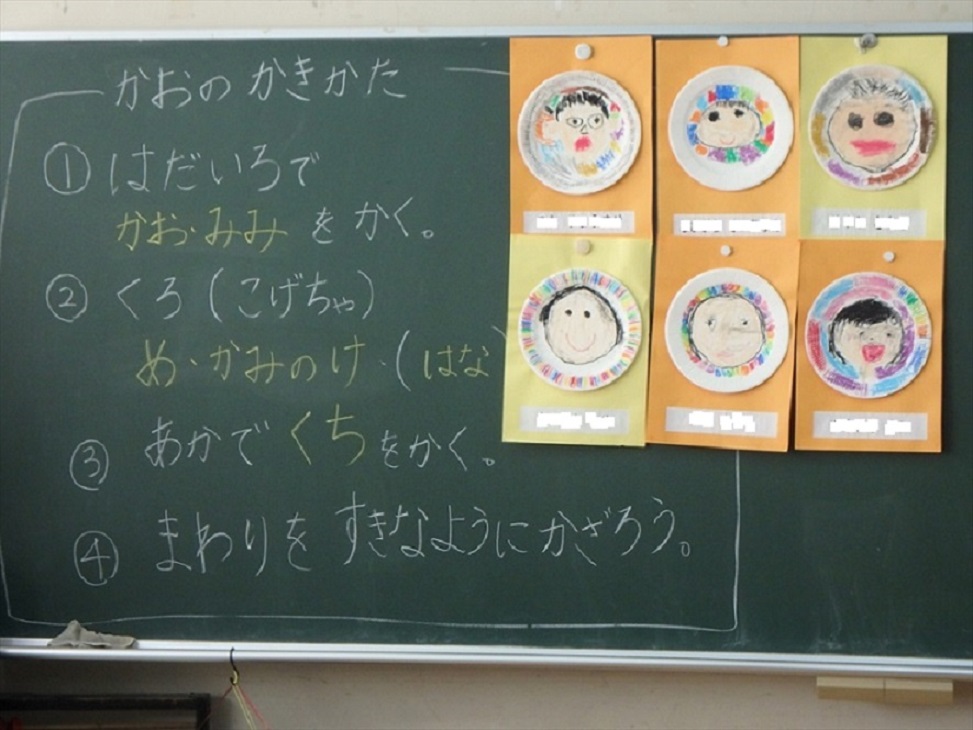 かおのかきかた
① はだいろで
かお・みみをかく。
② くろ(こげちゃ)
め・かみのけ・(はな)
③ あかでくちをかく。
④ まわりをすきなようにかざろう。